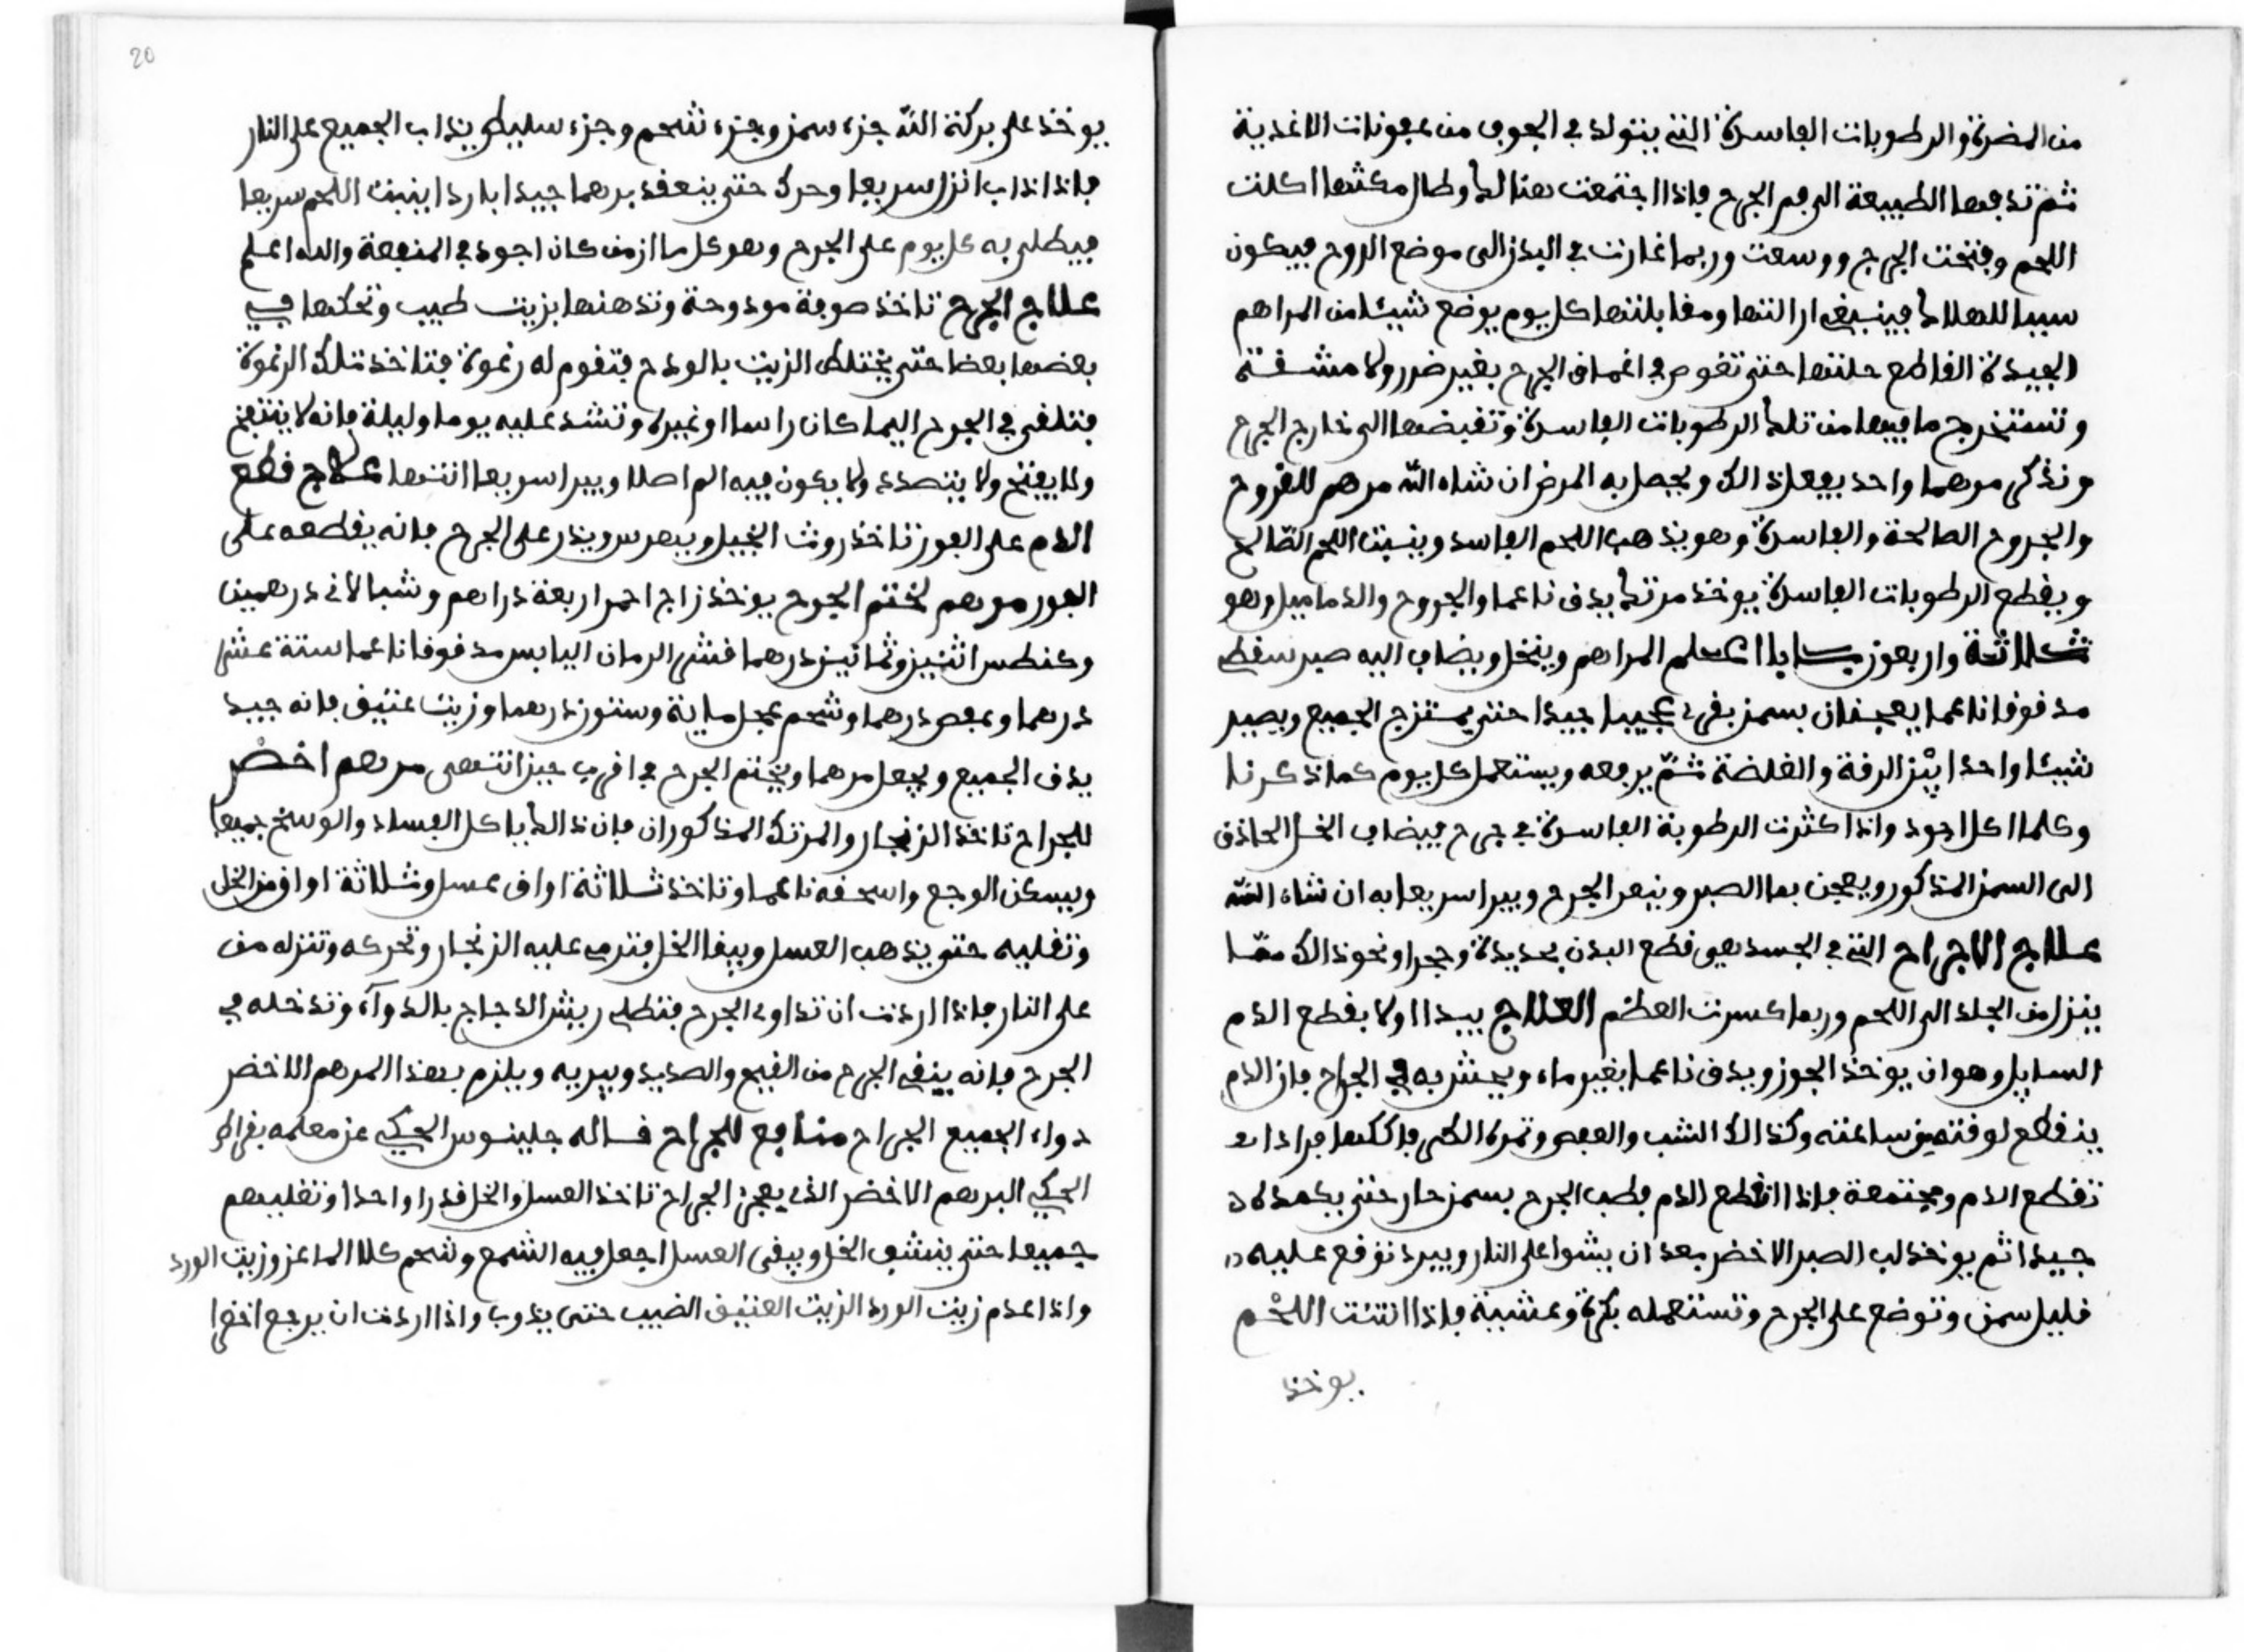 من المضرة والرطوبات الفاسدة التي يتولد في الجوف من عفونات الاغذية
ثم تدفعها الطبيعة الى فم الجرح فاذا اجتمعت هنالك وطال مكثها اكلت
اللحم وفتحت الجرح ووسعت وربما غارت في البدن الى موضع الروح فيكون
سببا للهلاك فينبغي ازالتها ومقابلتها كل يوم بوضع شيئا من المراهم
الجيدة القاطع حلتها حتى تغوص في اعماق الجرح بغير ضرر ولا مشقة
وتستخرج ما فيها من تلك الرطوبات الفاسدة وتقبضها الى خارج الجرح
ونذكر مرهما واحد يفعل ذالك ويحصل به المرض ان شاء الله مرهم للقروح
والجروح الصالحة والفاسدة وهو يذهب اللحم الفاسد وينبت اللحم الصالح
ويقطع الرطوبات الفاسدة يوخذ مرتك يدق ناعما والجروح والدماميل وهو
ثلاثة واربعون بابا اعلم المراهم وينخل ويضاف اليه صبر سقطر
مدقوقا ناعما يعجنان بسمن بقري عجيبا جيدا حتى يمتزج الجميع ويصير
شيئا واحدا بين الرقة والغلضة ثم يرفعه ويستعمل كل يوم كما ذكرنا
وكلما اكل اجود واذا كثرت الرطوبة الفاسدة في جرح فيضاف الخل الحاذق
الى السمن المذكور ويعجن بها الصبر وينعر الجرح ويبرا سريعا به ان شاء الله
علاج الاجراح التي في الجسد هي قطع البدن بحديدة وحجر او نحو ذالك ممّا
ينزل من الجلد الى اللحم وربما كسرت العظم العلاج يبدا اولا بقطع الدم
السايل وهو ان يوخذ الجوز ويدق ناعما بغير ماء ويحشر به في الجراح فان الدم
ينقطع لوقته من ساعته وكذالك الشب والعفص وتمرة
تقطع الدم ومجتمعة فاذا انقطع الدم فطب الجرح بسمن حار حتى يكمده
جيدا ثم يوخذ لب الصبر الاخضر بعد ان يشوا على النار ويبرد توقع عليه
قليل سمن وتوضع على الجرح وتستعمله بكرة وعشية فاذا انتنت اللحم
يوخذ
20
يوخذ على بركة الله جزء سمن وجزء شحم وجزء سليط يذاب الجميع على النار
فاذا ذاب انزل سريعا وحرك حتى ينعقد برهما جيدا باردا ينبت اللحم سريعا
فيطلى به كل يوم على الجرح وهو كل ما ازمن كان اجود في المنفعة والله اعلم
علاج الجرح تاخذ صوفة مودوحة وتدهنها بزيت طيب وتحكها في
بعضها بعضا حتى يختلط الزيت بالودح فتقوم له رغوة فتاخذ تلك الرغوة
فتلقى في الجرح اليما كان راسا او غيره وتشد عليه يوما وليلة فانه لا ينتفخ
ولا يفتح ولا يتصدد ولا يكون فيه الم اصلا ويبرا سريعا انتها علاج قطع
الدم على الفور تاخذ روث الخيل ويهرس ويذر على الجرح فانه يقطعه على
الفور مرهم لختم الجرح يوخذ زاج احمر اربعة دراهم وشب الاني درهمين
وكنطس اثنين وثمانين درهما قشر الرمان اليابس مدقوقا ناعما ستة عشر
درهما وعفص درهما وشحم عجل ماية وستون درهما وزيت عتيق فانه جيد
يدق الجميع ويجعل مرهما ويختم الجرح في اقرب حين انتهى مرهم اخضر
للجراح تاخذ الزنجار والمرتك المذكوران فان ذالك ياكل الفساد والوسخ جميعا
ويسكن الوجع واسحقه ناعما وتاخذ ثلاثة اواق عسل وثلاثة اواق من الخل
وتغليه حتى يذهب العسل ويبقا الخل فترمي عليه الزنجار وتحركه وتنزله من
على النار فاذا اردت ان تداوى الجرح فتطلي ريش الدجاج بالدواء وتدخله في
الجرح فانه ينقي الجرح من القيح والصديد ويبريه ويلزم بهذا المرهم الاخضر
دواء الجميع الجراح منافع للجراح قاله جلينوس الحكيم عن معلمه بقراط
الحكيم البرهم الاخضر الذي يعجن الجراح تاخذ العسل والخل قدرا واحدا وتغليهم
جميعا حتى ينشف الخل ويبقى العسل اجعل فيه الشمع وشحم كلا الماعز وزيت الورد
واذا عدم زيت الورد الزيت العتيق الضيب حتى يذوب واذا اردت ان يرجع اخضرا